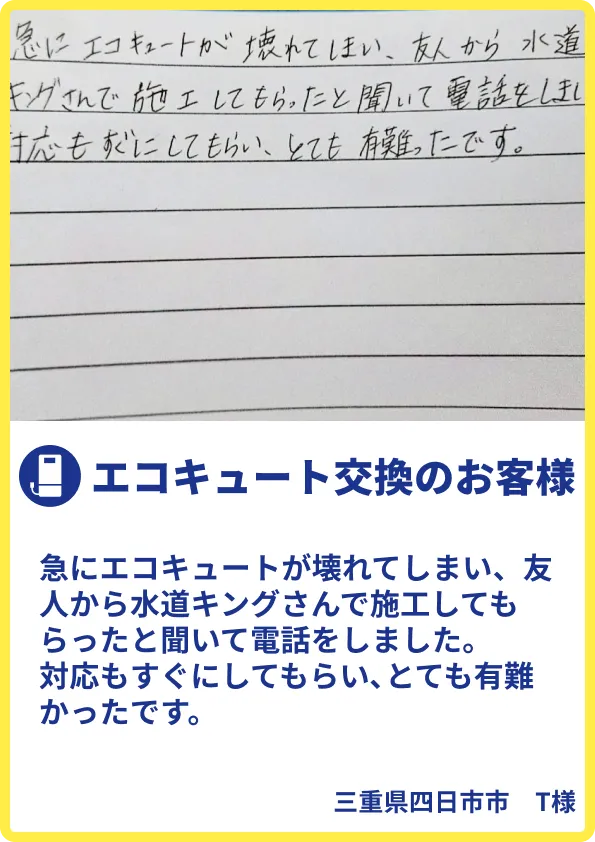 急にエコキュートが壊れてしまい、友人から水道
キングさんで施工してもらったと聞いて電話をしまし
対応もすぐにしてもらい、とても有難ったです。
エコキュート交換のお客様
急にエコキュートが壊れてしまい、友
人から水道キングさんで施工しても
らったと聞いて電話をしました。
対応もすぐにしてもらい、とても有難
かったです。
三重県四日市市　T様